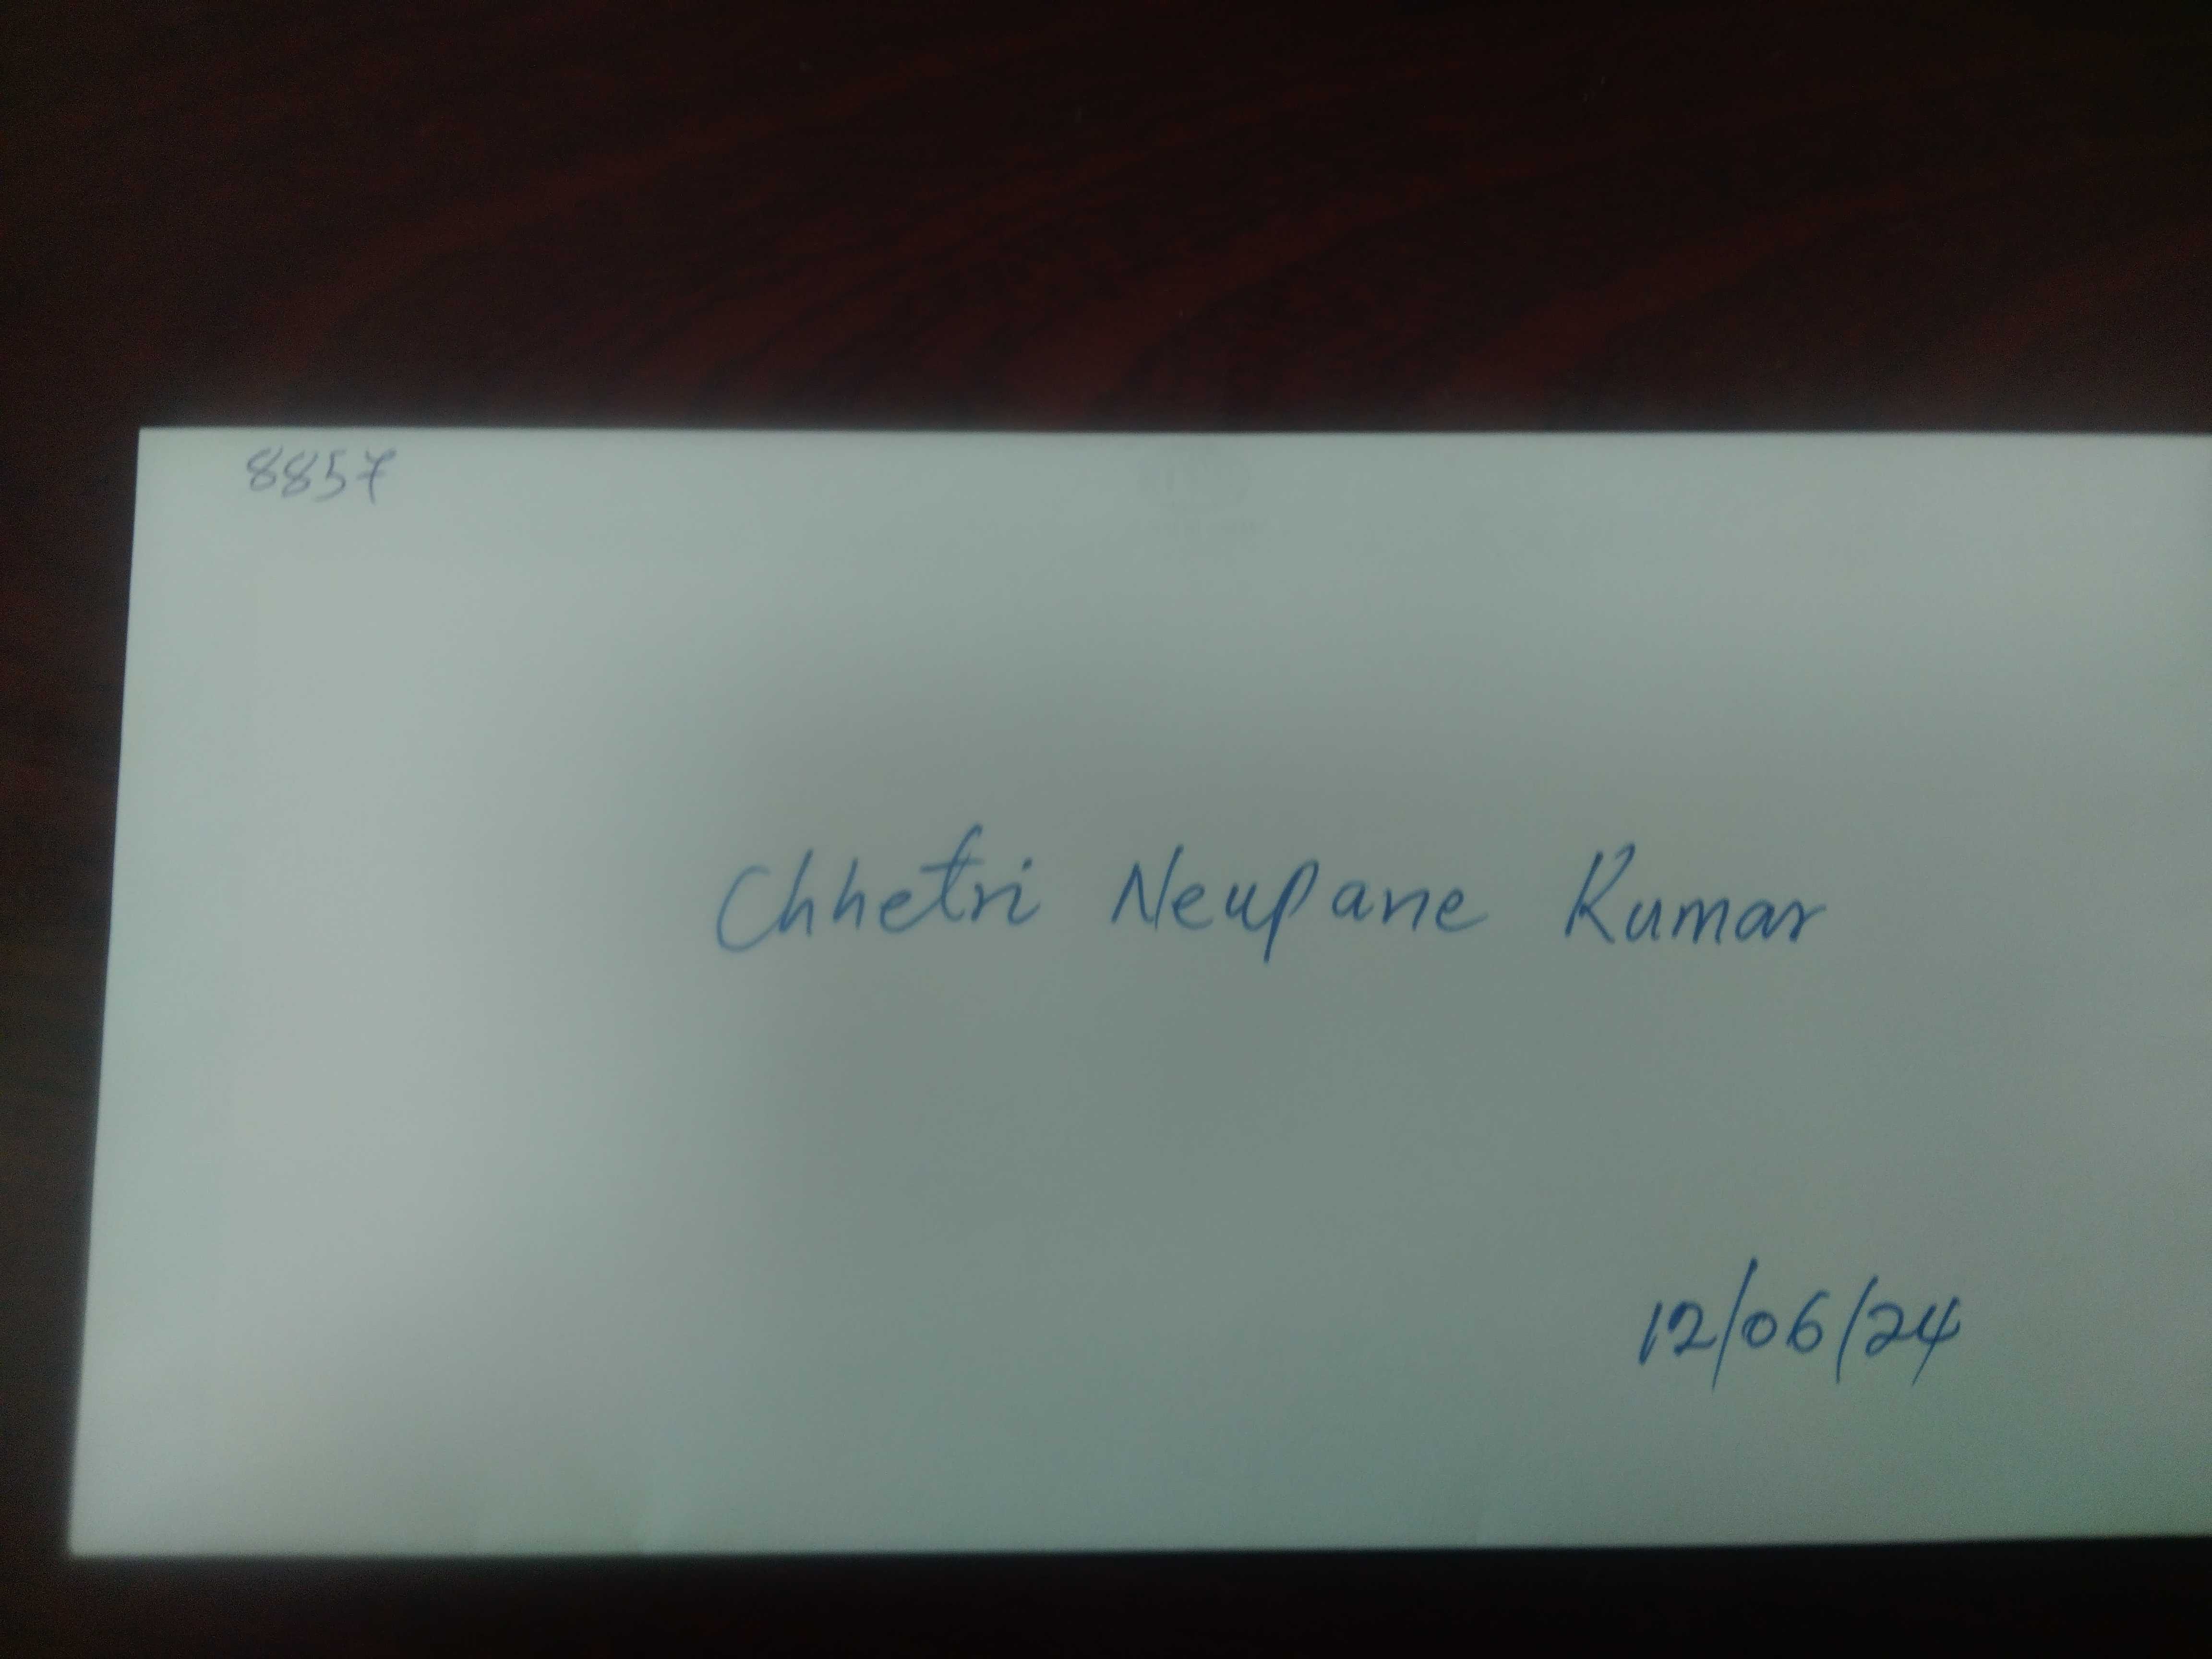 8857
Chhetri Neupane Kumar
12/06/24